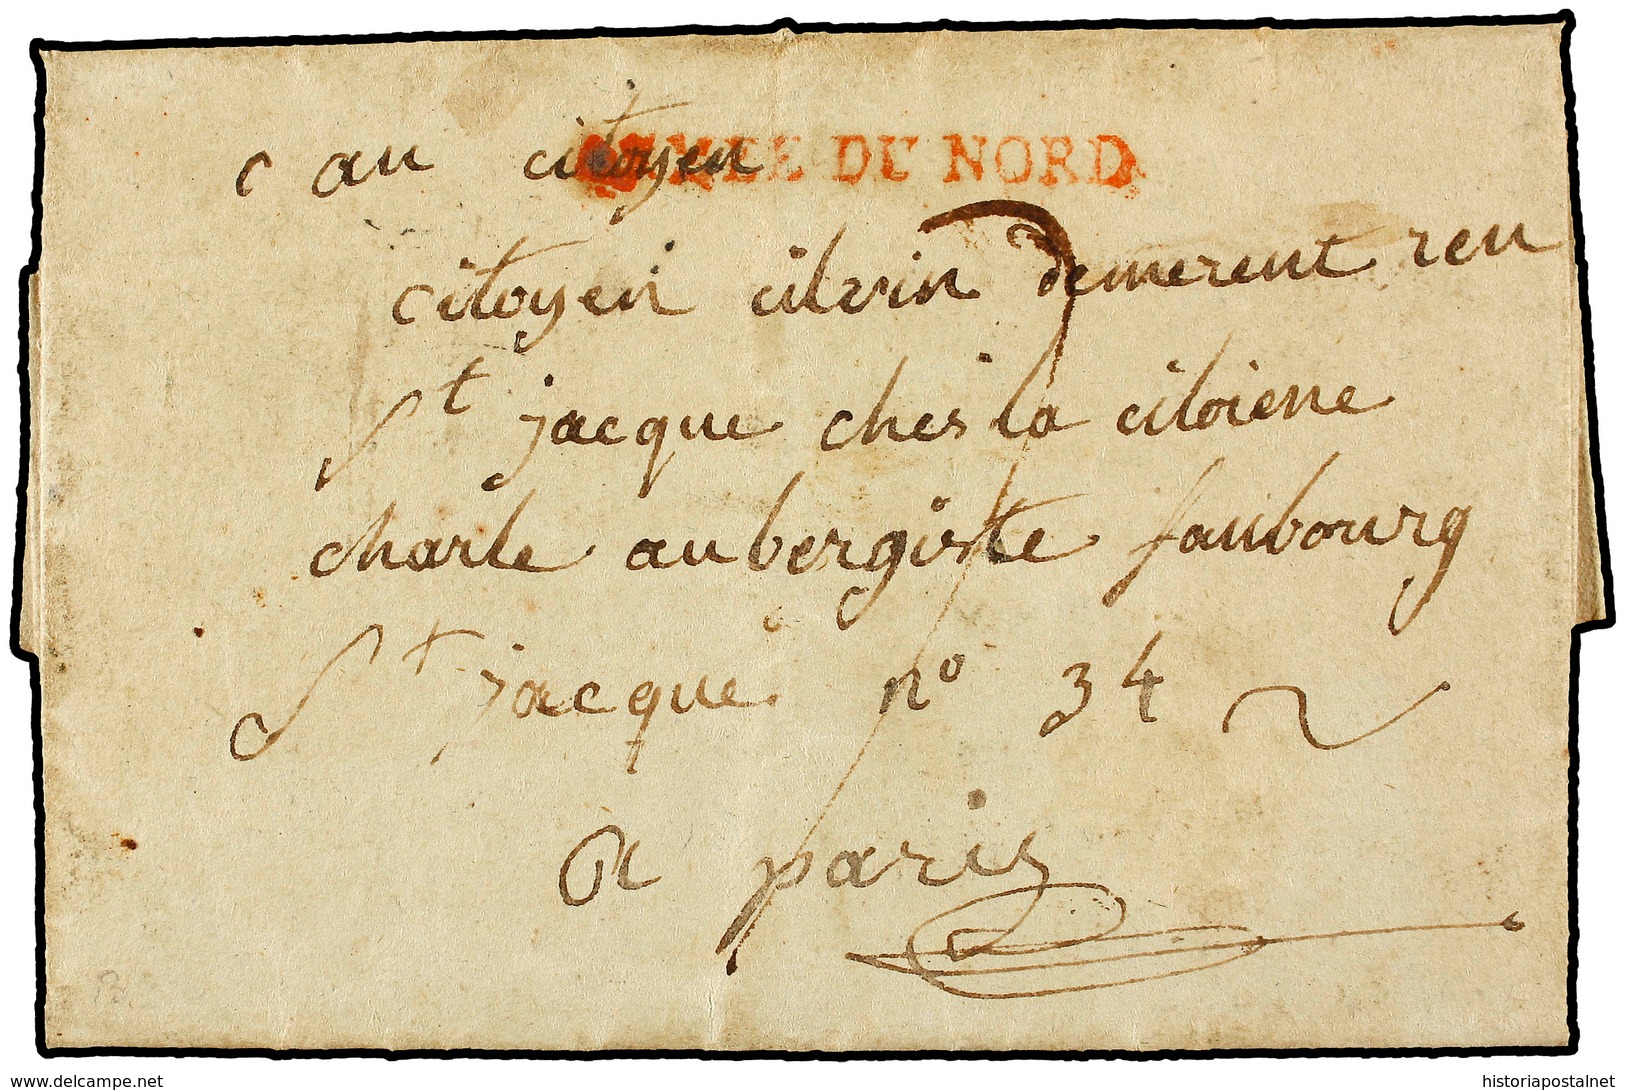 c au citoyen
ARMÉE DU NORD
citoyen cilvin demerent reu
St jacque ches la citoiene
charle aubergiste faubourg
St jacque no 34
a paris
historiapostalnet
delcampe.net